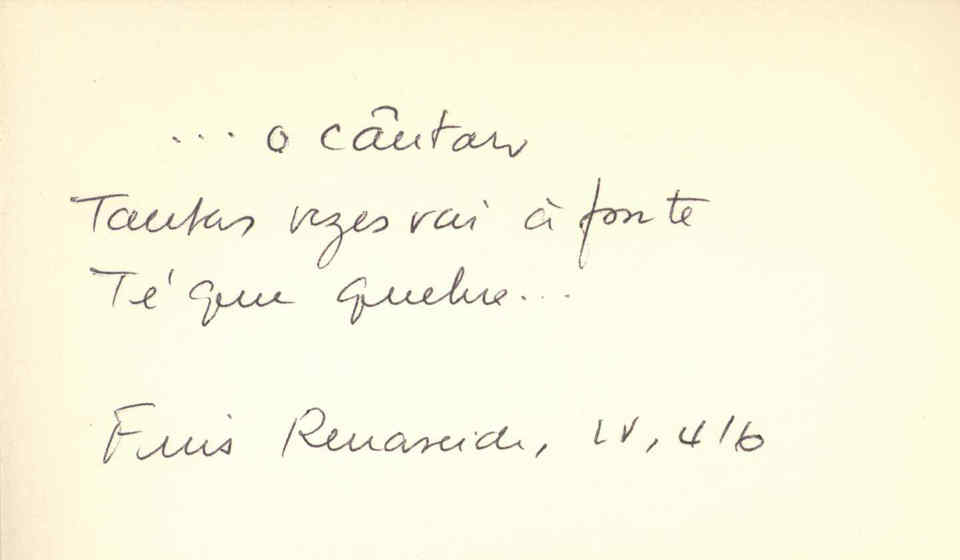 ... o cântaro
Tantas vezes vai à fonte
Té que quebre...
Fenis Renascida, IV, 416